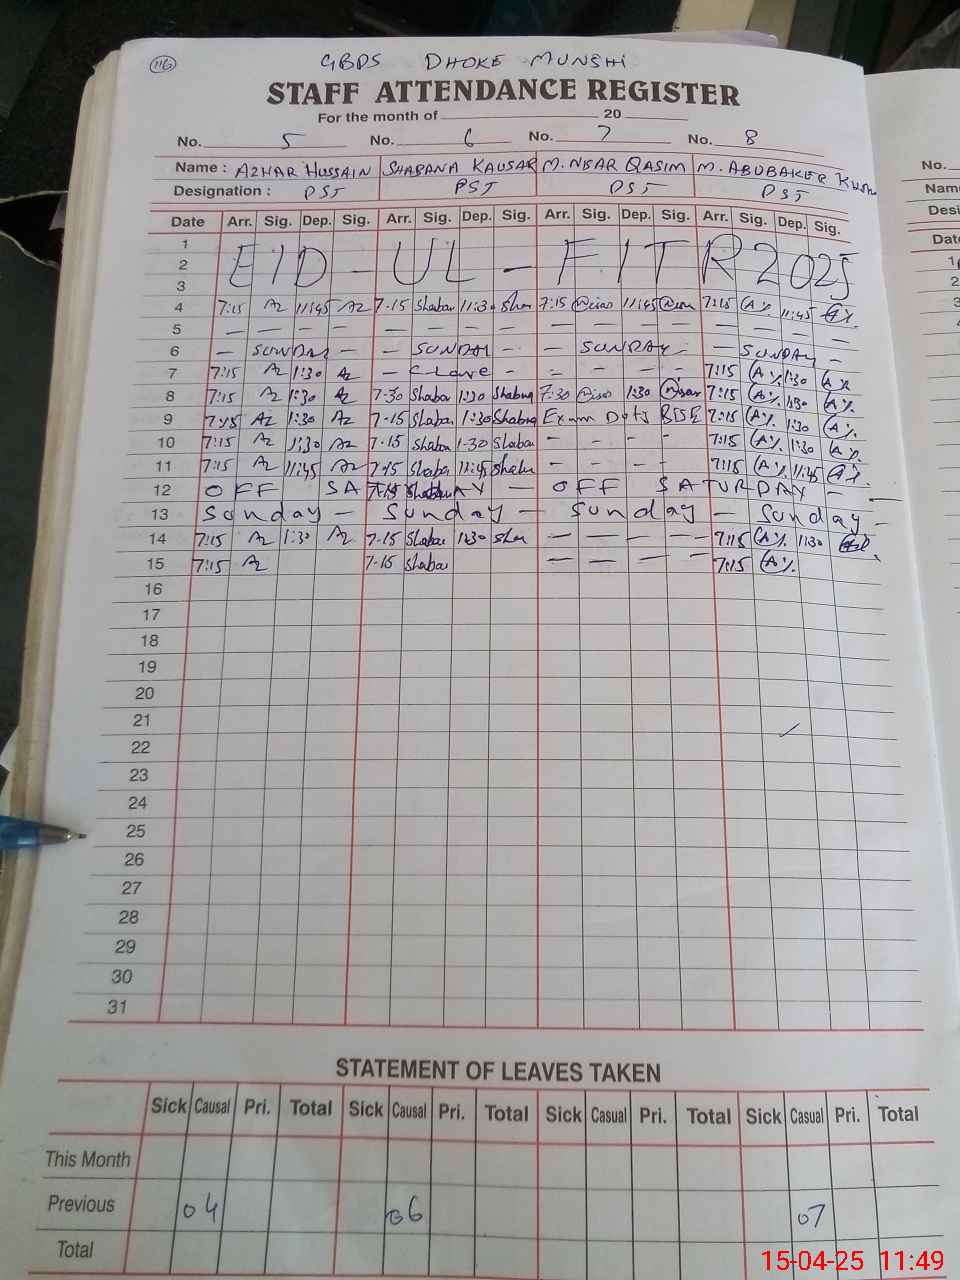 116
GBPS DHOKE MUNSHI
STAFF ATTENDANCE REGISTER
For the month of 20
No. 5 No. 6 No. 7 No. 8
Name : AZHAR HUSSAIN SHABANA KAUSAR M. NISAR QASIM M. ABUBAKER
Designation : PST PST PST PST
Date Arr. Sig. Dep. Sig. Arr. Sig. Dep. Sig. Arr. Sig. Dep. Sig. Arr. Sig. Dep. Sig.
1
2 EID - UL - FITR 2025
3
4 7:15 Az 11:45 Az 7-15 Shaba 11:30 Sha 7:15 11:45 7:15 11:45
5 — — — — — — — — — — — — — — — —
6 — SUNDAY — — SUNDAY — SUNDAY — — SUNDAY —
7 7:15 Az 1:30 Az — Leave — — — — — 7:15 1:30
8 7:15 Az 1:30 Az 7-30 Shaba 1:30 Shabana 7:30 1:30 7:15 1:30
9 7:15 Az 1:30 Az 7-15 Shaba 1:30 Shabana Exam Duty BISE 7:15 1:30
10 7:15 Az 1:30 Az 7-15 Shaba 1-30 Shaba — — — — 7:15 1:30
11 7:15 Az 11:45 Az 7-15 Shaba 11:45 Shaba — — — — 7:15 11:45
12 OFF SATURDAY — OFF SATURDAY —
13 Sunday — Sunday — Sunday — Sunday —
14 7:15 Az 1:30 Az 7-15 Shaba 1:30 Sha — — — — 7:15 1:30
15 7:15 Az 7-15 Shaba — — — — 7:15
16
17
18
19
20
21
22
23
24
25
26
27
28
29
30
31
STATEMENT OF LEAVES TAKEN
Sick Causal Pri. Total Sick Causal Pri. Total Sick Casual Pri. Total Sick Casual Pri. Total
This Month
Previous 04 06 07
Total
No.
Name
Desi
Date
15-04-25 11:49